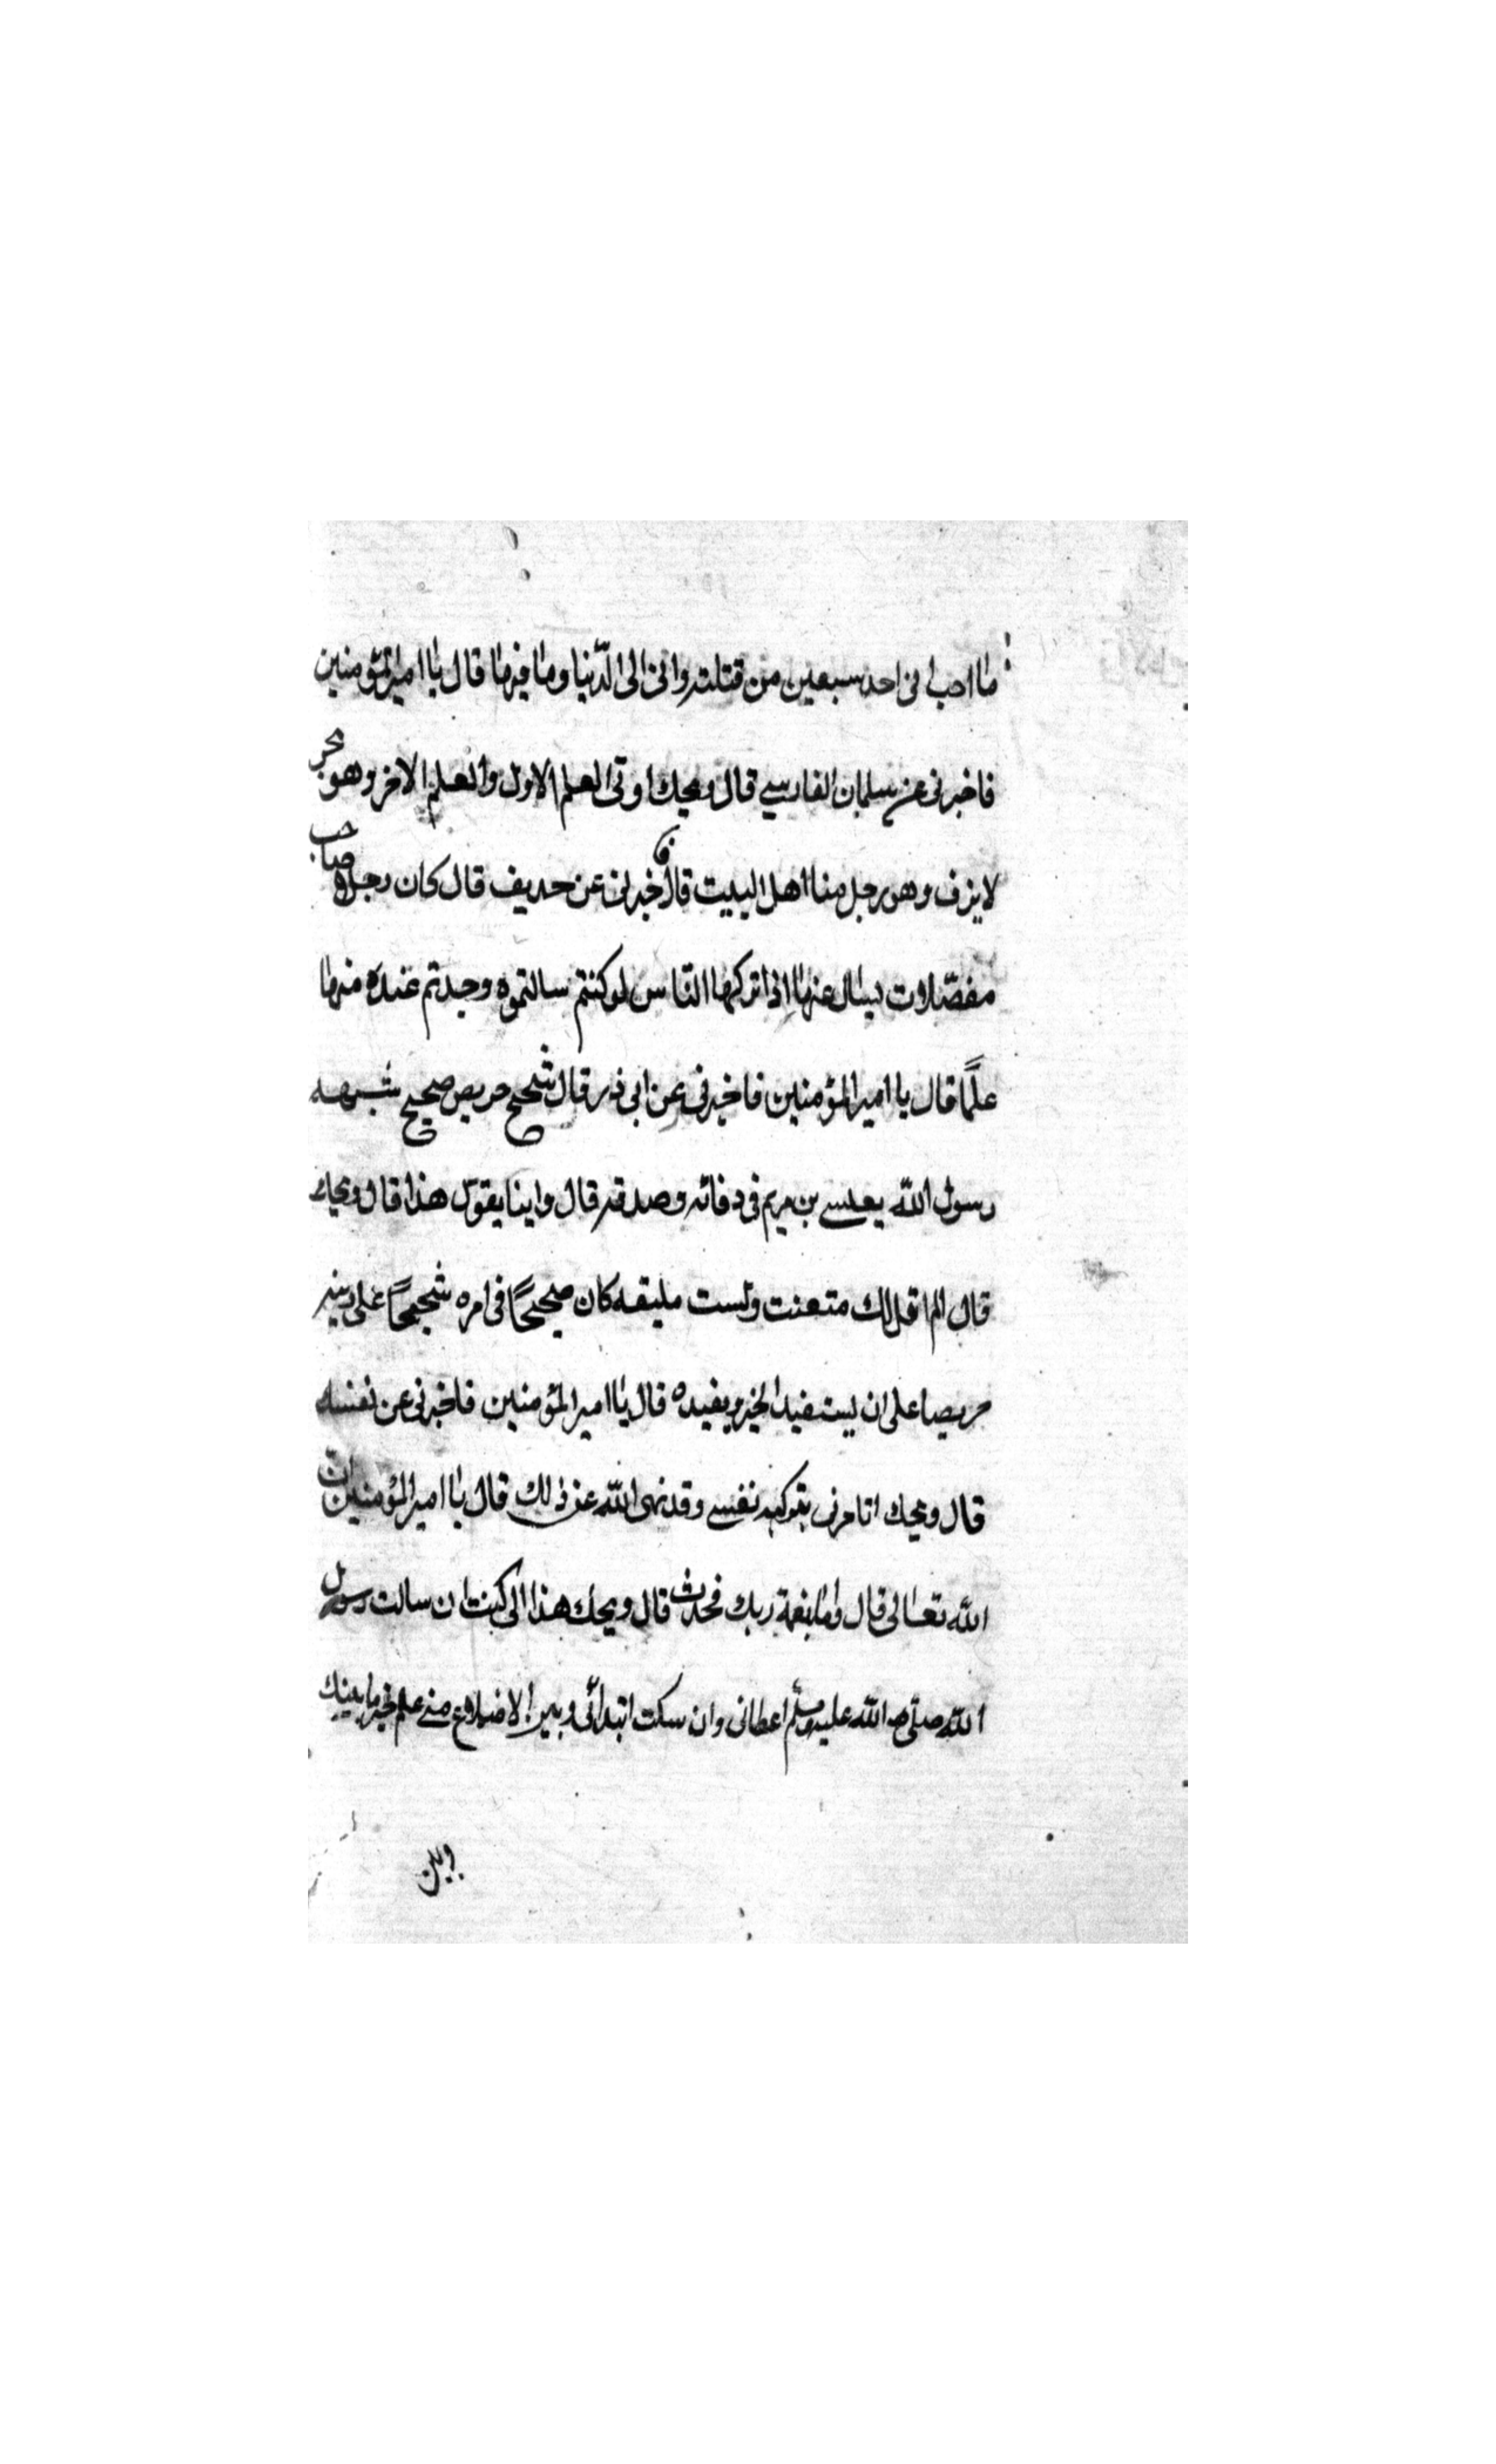 ما احب انى احد سبعين من قتلته وانى الى الدّنيا وما فيها قال يا امير المؤمنين
فاخبرنى عن سلمان الفارسي قال ويحك اوتى العلم الاول والعلم الاخر وهو بحر
لا ينزف وهو رجل منا اهل البيت قال فاخبرنى عن حديف قال كان رجلا صاحب
مفصّلات يسال عنها اذا تركها النّاس لو كنتم سالتموه وجدتم عنده منها
علمًا قال يا امير المؤمنين فاخبرنى عن ابى ذر قال شحيح حريص صحيح شبهه
رسول اللّه بعيسى بن مريم فى وفائه وصدقه قال واينا يقول هذا قال ويحك
قال الم اقل لك متعنت ولست مليقه كان صحيحًا فى امره شحيحًا على دينه
حريصا على ان يستفيد الخير ويفيده قال يا امير المؤمنين فاخبرنى عن نفسك
قال ويحك اتامرنى بتوكيد نفسى وقد نهى اللّه عن ذلك قال يا امير المؤمنين ان
اللّه تعالى قال واما بنعمة ربك فحدث قال ويحك هذا الى كنت ان سالت رسول
اللّه صلى اللّه عليه وسلم اعطانى وان سكت ابتدانى وبين الاضلاع منى علم خير ما بينك